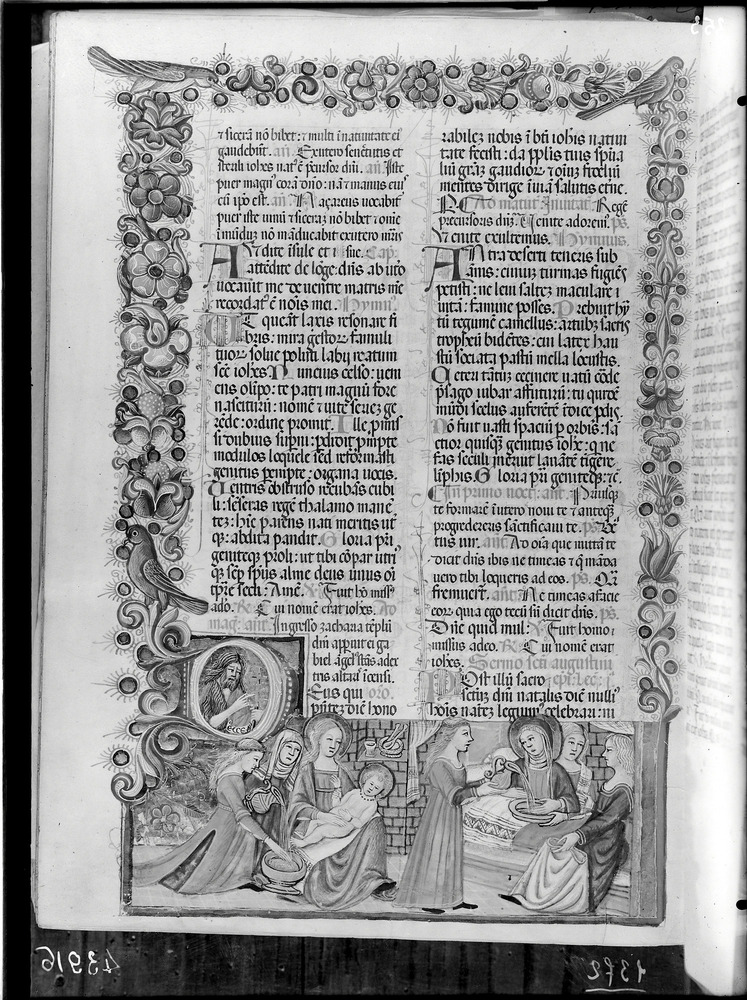 ⁊ sicerã nõ bibet : ⁊ multi ĩ natiuitate ei
gaudebũt. añ. Exutero senectutis et
sterili ioħes nat' ẽ p̃cursor dñi. añ. Iste
puer magn' corã dño : nã ⁊ manus eiu'
cũ ipo est. añ. Naçareus uocabit
puer iste uinũ ⁊ sicerã nõ bibet ⁊ om̃e
ĩmũdũ nõ mãducabit exutero mr̃is
Audite ĩsule et Cap.
attẽdite de lõge : dñs ab uto
uocauit me de uentre matris me
recordat' ẽ nõis mei. Hymn
Ut queãt laxis resonare fi
bris : mira gestoꝝ famuli
tuoꝝ solue polluti labij reatum
scẽ ioħes. Nuncius celso : ueni
ens olĩpo : te patri magnũ fore
nasciturũ : nomẽ ⁊ uite seriez ge
rẽde : ordine promit. Ille pmis
si dubius supni : pdidit pmpte
modulos loquele sed reformasti
genitus pempte : organa uocis.
Uentris obstruso recubãs cubi
li : sẽseras regẽ thalamo manẽ
tez : hic parens nati meritis ut
qꝫ : abdita pandit. Gloria pri
geniteqꝫ proli : ut tibi cõpar utri'
qꝫ sẽp spũs alme deus unus oĩ
tp̃re secli : Amẽ. Fuit hõ miss'
ado. ℟. Cui nomẽ erat ioħes. Ad
mag. añt. Ingresso zacharia tẽplũ
dñi appuit ei ga
biel ãgel' stãs adex
tris altar' ĩcensi.
Eus qui oro.
pñtez diẽ hono
rabilez nobis ĩ bti ioħis natiui
tate fecisti : da pplis tuis spũa
liũ grãz gaudioꝝ ⁊ oiuz fideliũ
mentes dirige ĩ uiã salutis etne.
Ad matut' Ĩuitat'. Regẽ
precursoris dñz. Uenite adorem'. ps.
Uenite exultemus. Hymnus.
Antra deserti teneris sub
ãnis : ciuiuz turmas fugiẽs
petisti : ne leui saltez maculare
uitã : famine posses. Prebuit hy
tũ tegumẽ camellus : artubz sacris
tropheũ bidẽtes : cui latex hau
stũ sociata pastũ mella locustis.
Ceteri tãtuz cecinere uatũ corde
psago iubar affuturũ : tu quidẽ
mũdi scelus auferẽtẽ ĩdice pdis.
Nõ fuit uasti spaciũ p orbis : sã
ctior quisqꝫ genitus ioħe : q ne
fas secli meruit lauãtẽ tigere
lĩphis. Gloria pri geniteqꝫ. ⁊c.
In primo noct. añt. Priusqꝫ
te formarẽ ĩ utero noui te ⁊ anteqꝫ
progredereris sãctificaui te. ps. Be
tus uir. añt. Ad oĩa que mittã te
dicit dñs ibis ne timeas ⁊ q̃ mãda
uero tibi loqueris ad eos. ps. Qr̃
fremuerũt. añt. Ne timeas afacie
eoꝝ quia ego tecũ sũ dicit dñs. ps.
Dñe quid mul. Fuit homo
missus adeo. ℟. Cui nomẽ erat
ioħes. Sermo scti augustini
Post illũ sacro epi. Lec. i.
sctũz dñi natalis diẽ nulli'
hõis natez legim' celebrari : ni
43916
1372